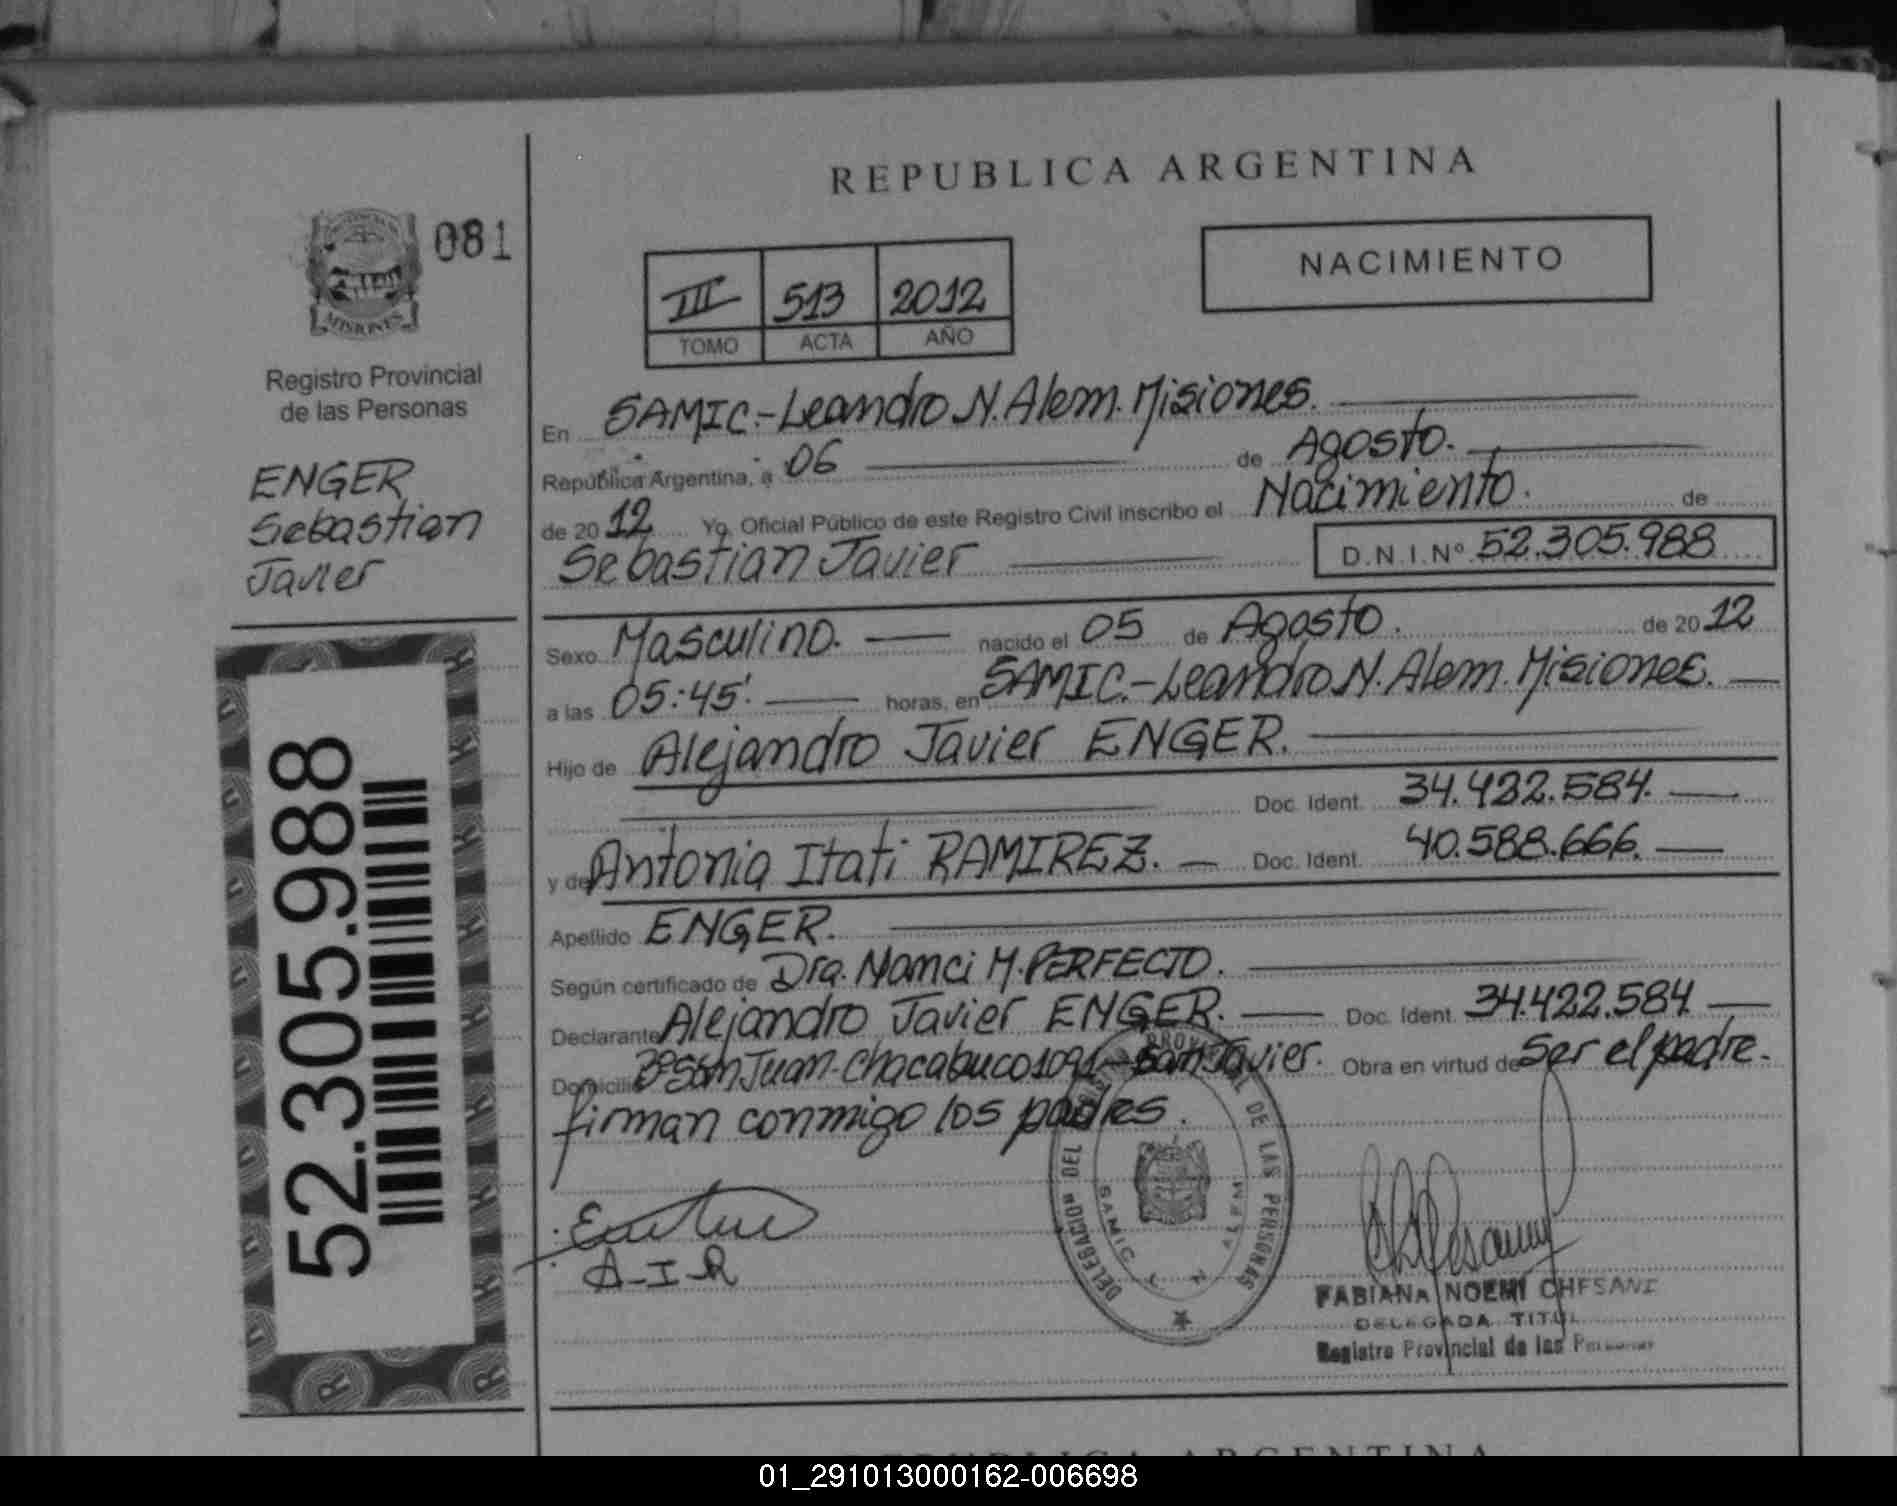 REPUBLICA ARGENTINA
081
MISIONES
NACIMIENTO
III 513 2012
TOMO ACTA AÑO
Registro Provincial
de las Personas
ENGER
Sebastian
Javier
52.305.988
En SAMIC.-Leandro N. Alem. Misiones.
Republica Argentina, a 06 de Agosto.
de 2012 Yo, Oficial Público de este Registro Civil inscribo el Nacimiento. de
Sebastian Javier D.N.I.Nº 52.305.988
Sexo Masculino. nacido el 05 de Agosto. de 2012
a las 05:45'. horas, en SAMIC.-Leandro N. Alem. Misiones.
Hijo de Alejandro Javier ENGER.
Doc. Ident. 34.422.584.
y de Antonia Itati RAMIREZ. Doc. Ident. 40.588.666.
Apellido ENGER.
Según certificado de Dra. Nanci M. PERFECTO.
Declarante Alejandro Javier ENGER. Doc. Ident. 34.422.584
Domicilio Bº San Juan-Chacabuco 1091-San Javier. Obra en virtud de Ser el padre.
firman conmigo los padres.
A-I-R
DELEGACION DEL PROVINCIAL DE LAS PERSONAS
SAMIC L N ALEM
FABIANA NOEMI CHESANI
DELEGADA TITUL
Registro Provincial de las Personas
REPUBLICA ARGENTINA
01_291013000162-006698